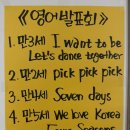 《영어발표회》
1. 만3세 I want to be
Let's dance together
2. 만2세 pick pick pick
3. 만4세 Seven days
4. 만5세 We love Korea
Four Seasons